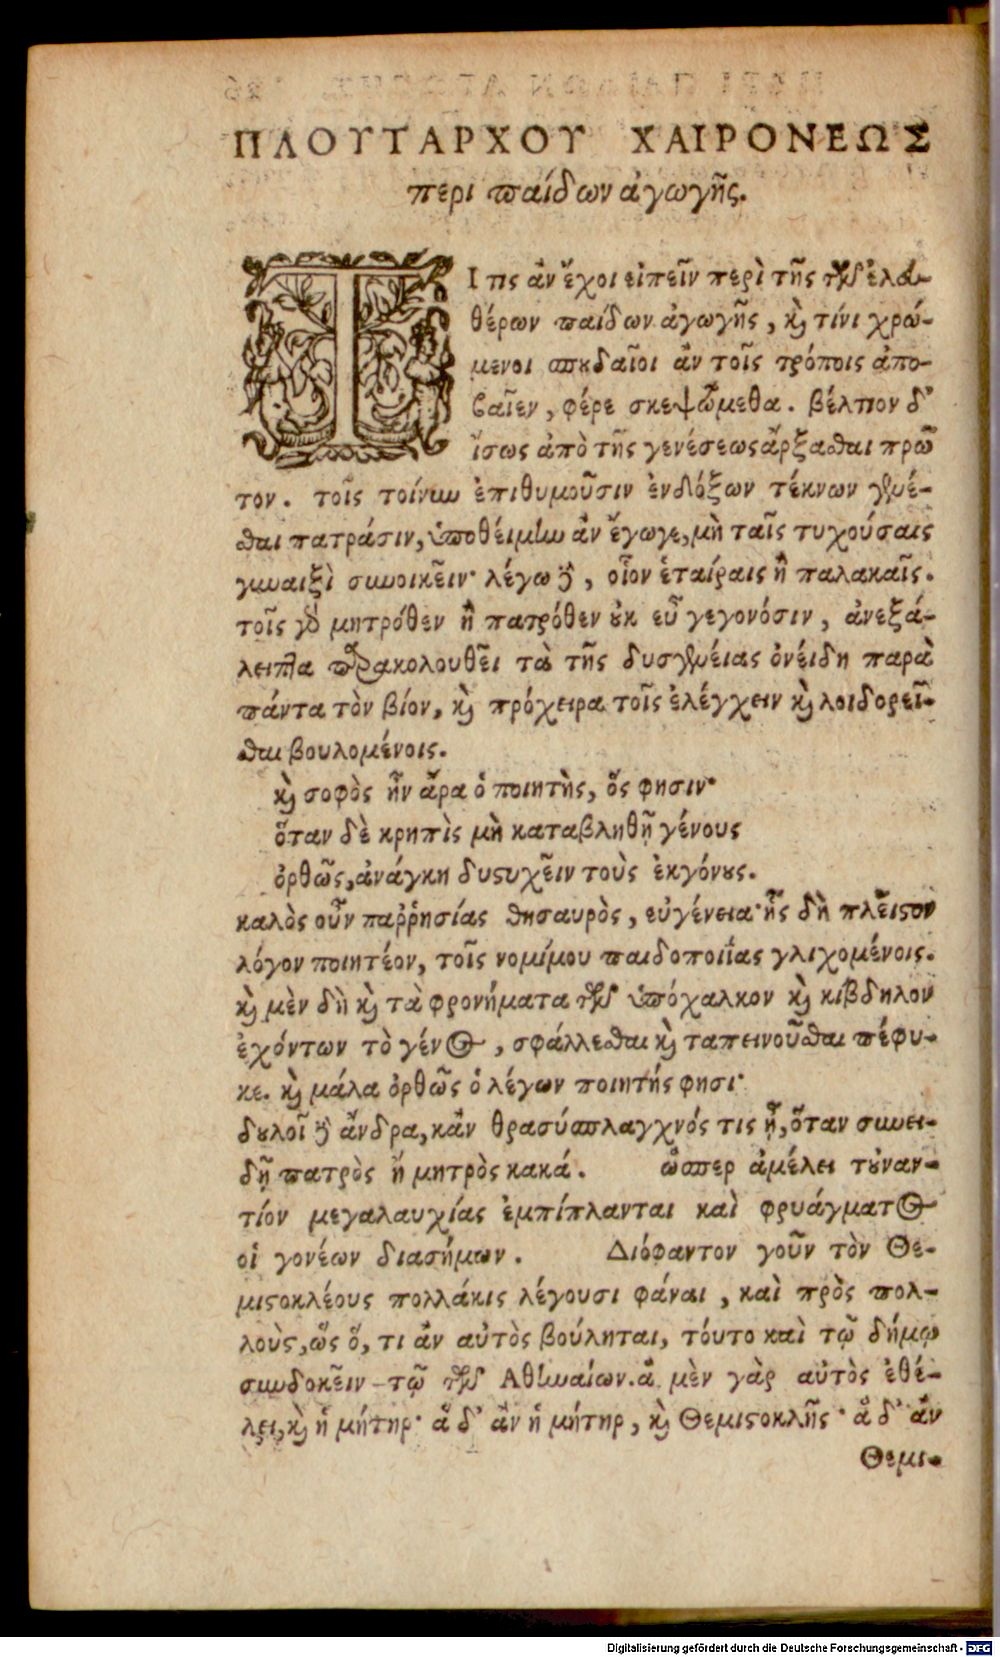 ΠΛΟΥΤΑΡΧΟΥ ΧΑΙΡΟΝΕΩΣ
περι παίδων ἀγωγῆς.
ΤΙ τις ἂν ἔχοι εἰπεῖν περὶ τῆς τῶν ἐλευ-
θέρων παίδων ἀγωγῆς, καὶ τίνι χρώ-
μενοι σπουδαῖοι ἂν τοῖς τρόποις ἀπο-
βαῖεν, φέρε σκεψώμεθα. βέλτιον δ'
ἴσως ἀπὸ τῆς γενέσεως ἄρξασθαι πρῶ
τον. τοῖς τοίνυν ἐπιθυμοῦσιν ἐνδόξων τέκνων γενέ-
σθαι πατράσιν, ὑποθέιμην ἂν ἔγωγε, μὴ ταῖς τυχούσαις
γυναιξὶ συνοικεῖν· λέγω δὲ, οἷον ἑταίραις ἢ παλακαῖς.
τοῖς γὰρ μητρόθεν ἢ πατρόθεν οὐκ εὖ γεγονόσιν, ἀνεξά-
λειπτα παρακολουθεῖ τὰ τῆς δυσγενείας ὀνείδη παρὰ
πάντα τὸν βίον, καὶ πρόχειρα τοῖς ἐλέγχειν καὶ λοιδορεῖ-
σθαι βουλομένοις.
καὶ σοφὸς ἦν ἄρα ὁ ποιητὴς, ὅς φησιν·
ὅταν δὲ κρηπὶς μὴ καταβληθῇ γένους
ὀρθῶς, ἀνάγκη δυστυχεῖν τοὺς ἐκγόνους.
καλὸς οὖν παῤῥησίας θησαυρὸς, εὐγένεια· ἧς δὴ πλεῖστον
λόγον ποιητέον, τοῖς νομίμου παιδοποιΐας γλιχομένοις.
καὶ μὲν δὴ καὶ τὰ φρονήματα τῶν ὑπόχαλκον καὶ κίβδηλον
ἐχόντων τὸ γένος, σφάλλεσθαι καὶ ταπεινοῦσθαι πέφυ-
κε. καὶ μάλα ὀρθῶς ὁ λέγων ποιητής φησι·
δουλοῖ δὲ ἄνδρα, κἂν θρασύσπλαγχνός τις ᾖ, ὅταν συνει-
δῇ πατρὸς ἢ μητρὸς κακά. ὥσπερ ἀμέλει τοὐναν-
τίον μεγαλαυχίας ἐμπίπλανται καὶ φρυάγματος
οἱ γονέων διασήμων. Διόφαντον γοῦν τὸν Θε-
μιστοκλέους πολλάκις λέγουσι φάναι, καὶ πρὸς πολ-
λοὺς, ὡς ὅ, τι ἂν αὐτὸς βούληται, τόυτο καὶ τῷ δήμῳ
συνδοκεῖν τῷ τῶν Ἀθηναίων. ἃ μὲν γὰρ αὐτὸς ἐθέ-
λει, καὶ ἡ μήτηρ· ἃ δ' ἂν ἡ μήτηρ, καὶ Θεμιστοκλῆς· ἃ δ' ἂν
Θεμι-
Digitalisierung gefördert durch die Deutsche Forschungsgemeinschaft - DFG